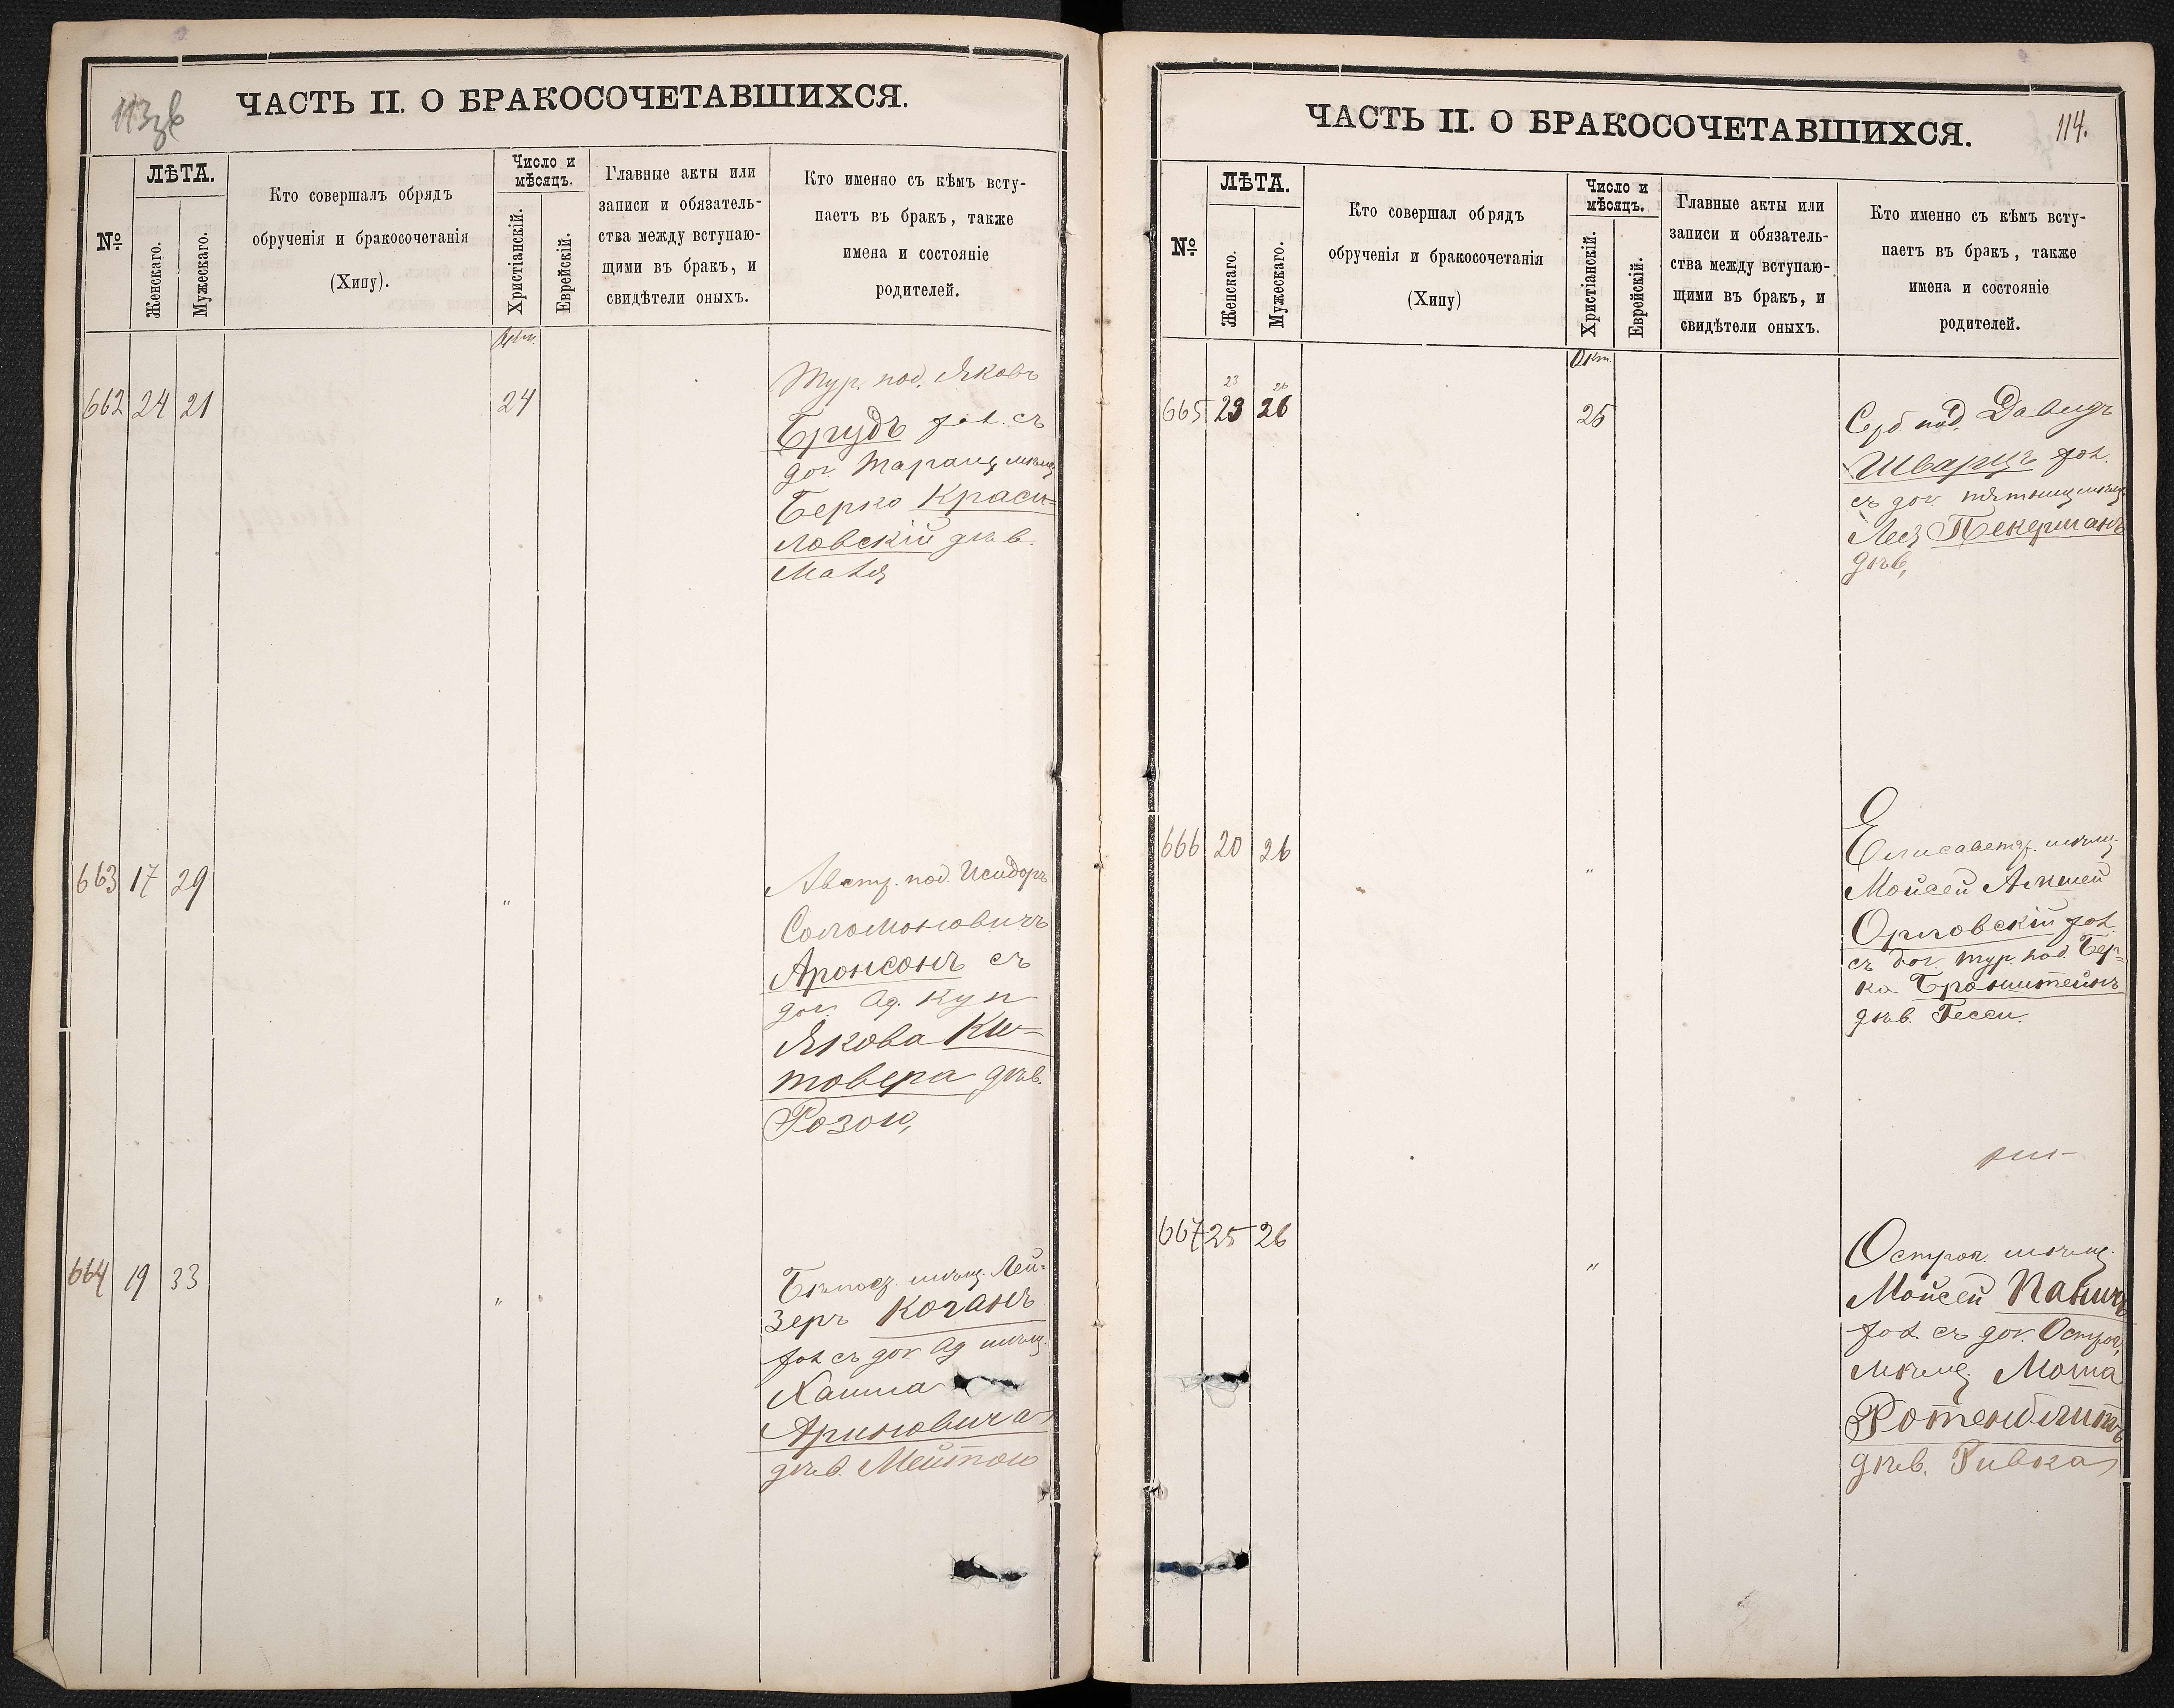 113 зв
ЧАСТЬ II. О БРАКОСОЧЕТАВШИХСЯ.
№
ЛѢТА.
Женскаго.
Мужескаго.
Кто совершалъ обрядъ
обрученія и бракосочетанія
(Хипу).
Число и
мѣсяцъ.
Христіанскій.
Еврейскій.
Главные акты или
записи и обязатель-
ства между вступаю-
щими въ бракъ, и
свидѣтели оныхъ.
Кто именно съ кѣмъ всту-
паетъ въ бракъ, также
имена и состояніе
родителей.
Окт.
662 24 21
24
Тур. под. Яковъ
Брудъ хол. съ
доч. Таращ мѣщ
Берко Краси=
ловскій дѣв.
Маня
663 17 29
"
Австр. под. Исидоръ
Соломоновичъ
Аронсонъ съ
доч. Од. Куп
Якова Ки=
товера дѣв.
Розою,
664 19 33
"
мѣщ. Лей=
зеръ Коганъ
хол съ доч Од мѣщ.
Хаима
Ариновича
дѣв. Мейтою
114.
ЧАСТЬ II. О БРАКОСОЧЕТАВШИХСЯ.
№
ЛѢТА.
Женскаго.
Мужескаго.
Кто совершал обрядъ
обрученія и бракосочетанія
(Хипу)
Число и
мѣсяцъ.
Христіанскій.
Еврейскій.
Главные акты или
записи и обязатель-
ства между вступаю-
щими въ бракъ, и
свидѣтели оныхъ.
Кто именно съ кѣмъ всту-
паетъ въ бракъ, также
имена и состояніе
родителей.
Окт.
23 26
665 23 26
25
Серб. под. Давидъ
Шварцъ хол.
съ доч. пятниц мѣщ
Пекерманъ
дѣв,
666 20 26
"
Елисаветг. мѣщ.
Мойсей
Орловскій хол.
съ доч. тур. под. Бер=
ка Бронштейнъ
дѣв. Гесси.
667 25 26
"
Остроп. мѣщ.
Мойсей Паничъ
хол. съ доч. Остроп,
мѣщ. Мошка
Ротенблитъ
дѣв. Ривка